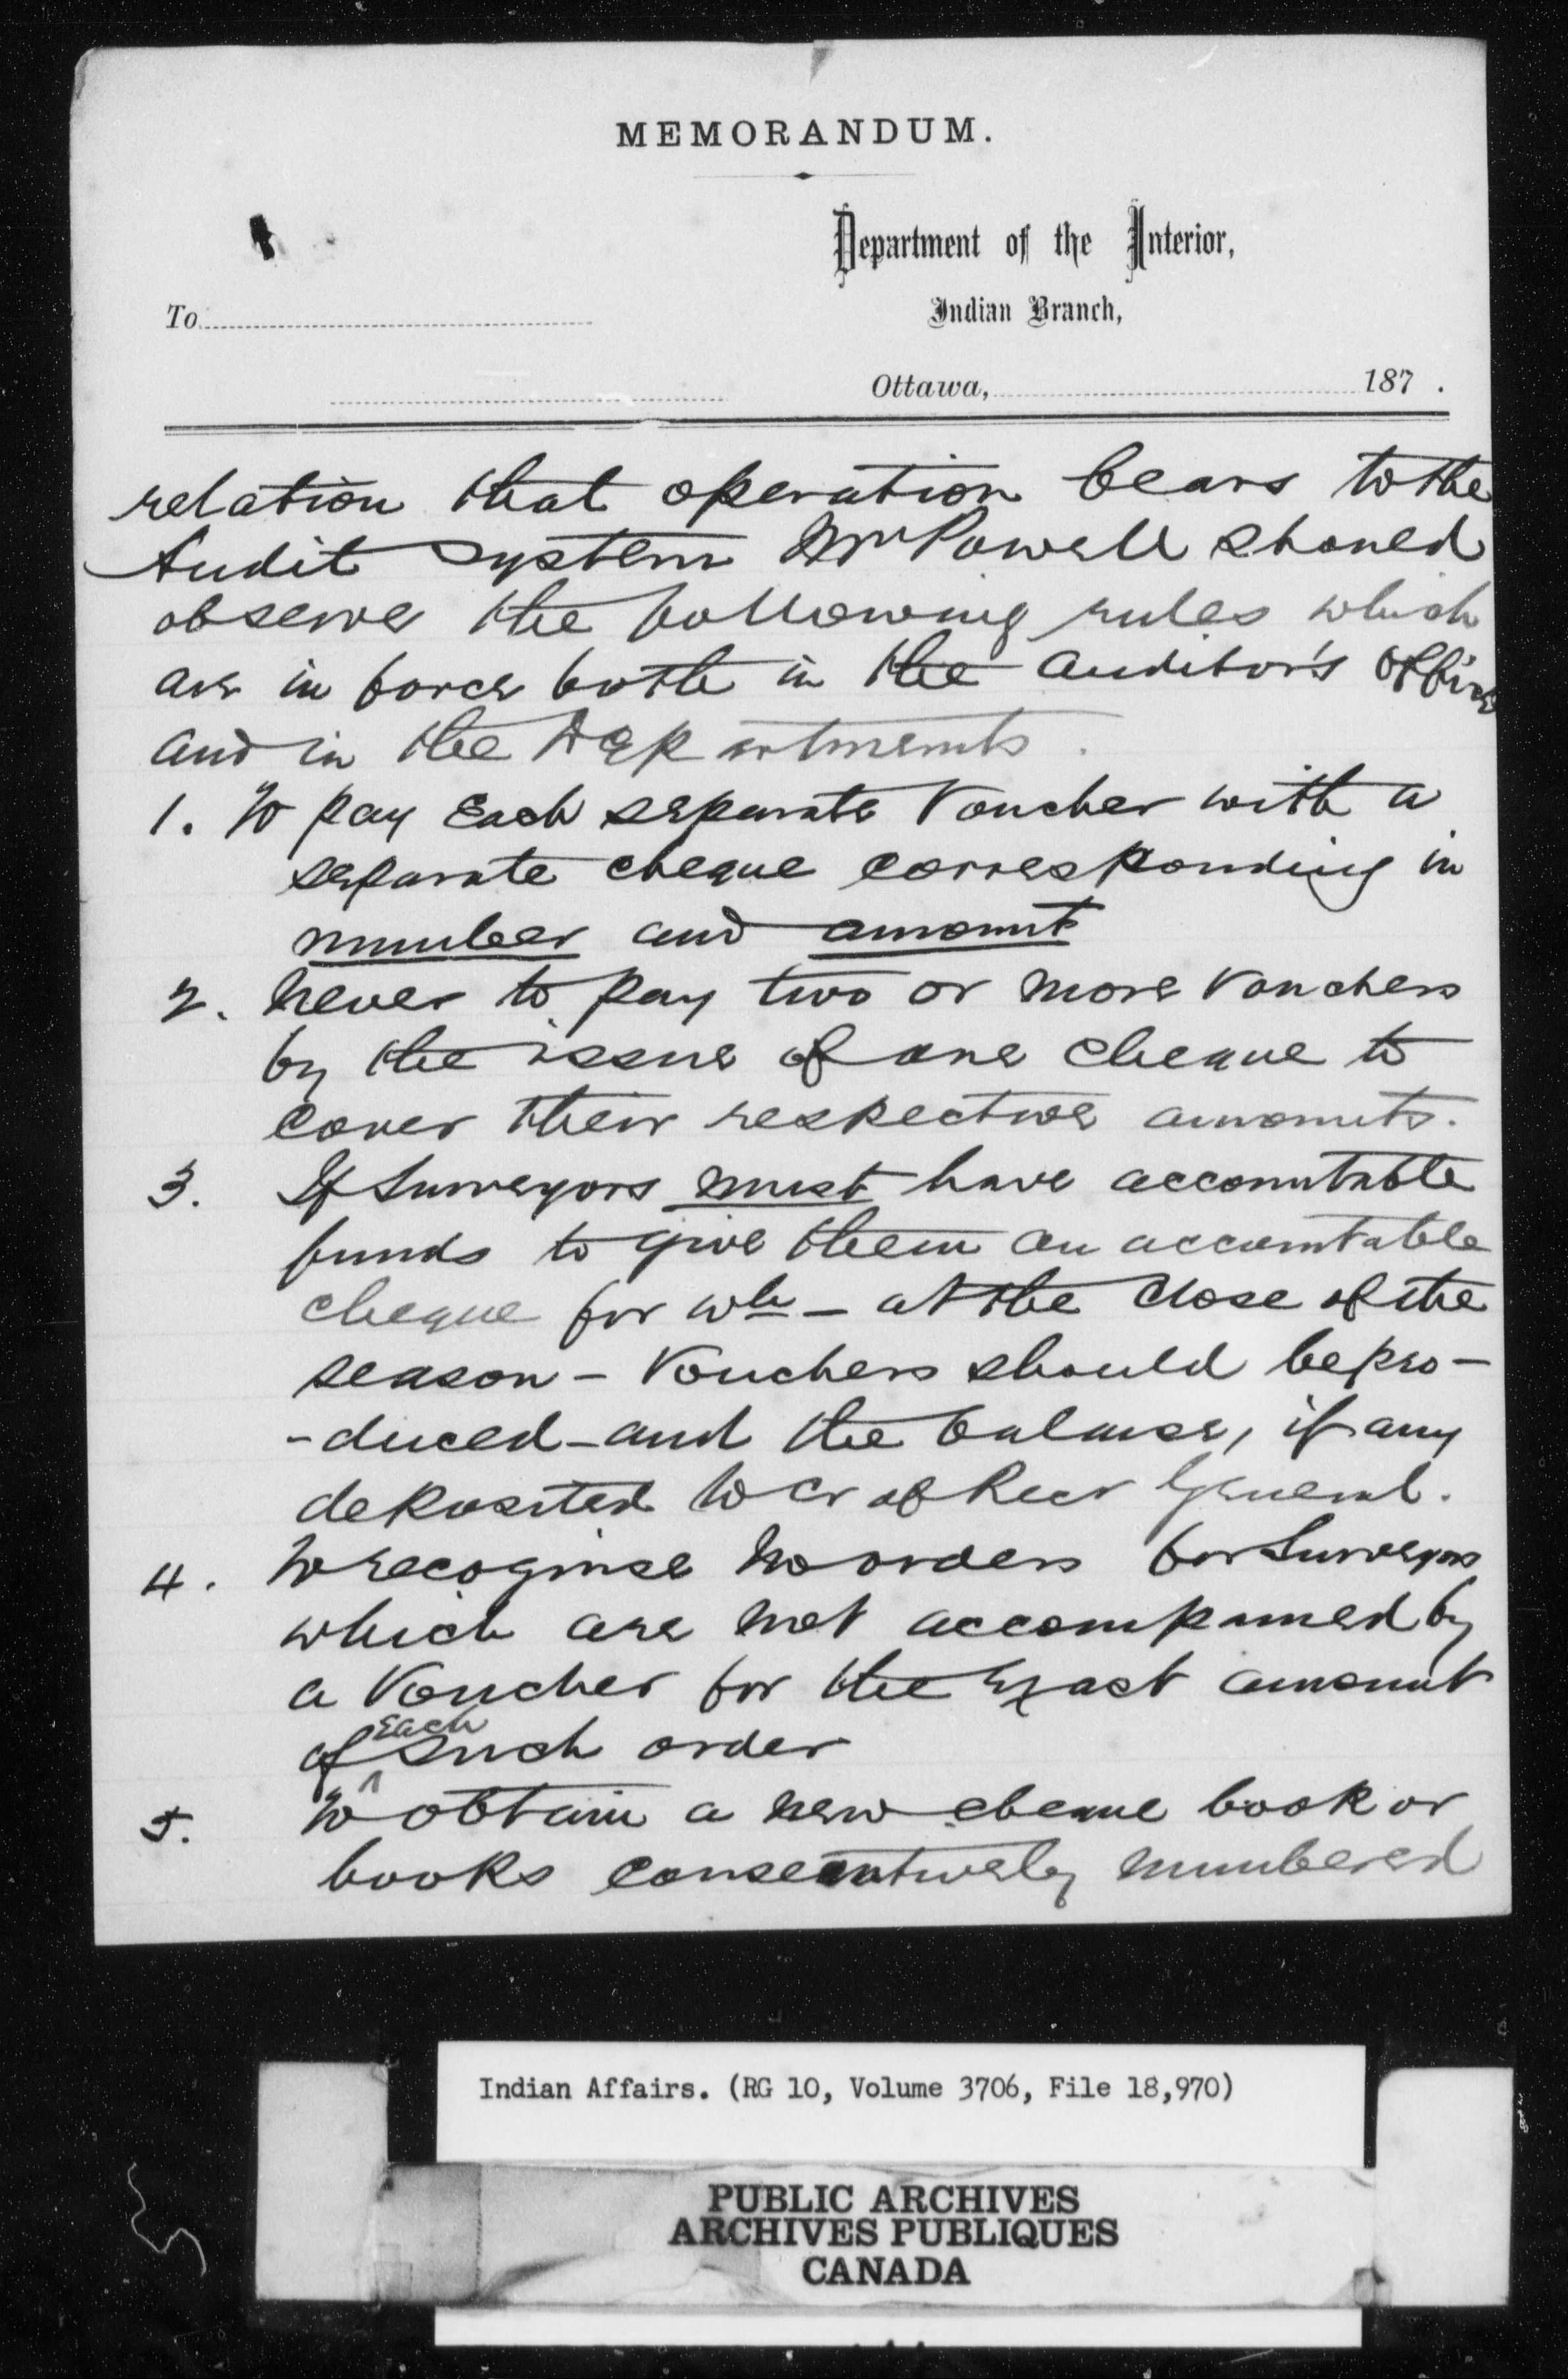 MEMORANDUM.
Department of the Interior,
To
Indian Branch,
Ottawa, 187 .
relation that operation bears to the
Audit system Mr Powell should
observe the following rules which
are in force both in the Auditor's Office
and in the Departments.
1. To pay Each separate Voucher with a
separate cheque corresponding in
number and amount
2. Never to pay two or more Vouchers
by the issue of one cheque to
cover their respective amounts.
3. If Surveyors must have accountable
funds to give them an accountable
cheque for wh - at the close of the
season - Vouchers should be pro-
-duced - and the balance, if any
deposited to Cr of Recr General.
4. To recognise no orders for Surveyors
which are not accompanied by
a Voucher for the Exact amount
of Each such order
5. To obtain a new cheque book or
books consecutively numbered
Indian Affairs. (RG 10, Volume 3706, File 18,970)
PUBLIC ARCHIVES
ARCHIVES PUBLIQUES
CANADA